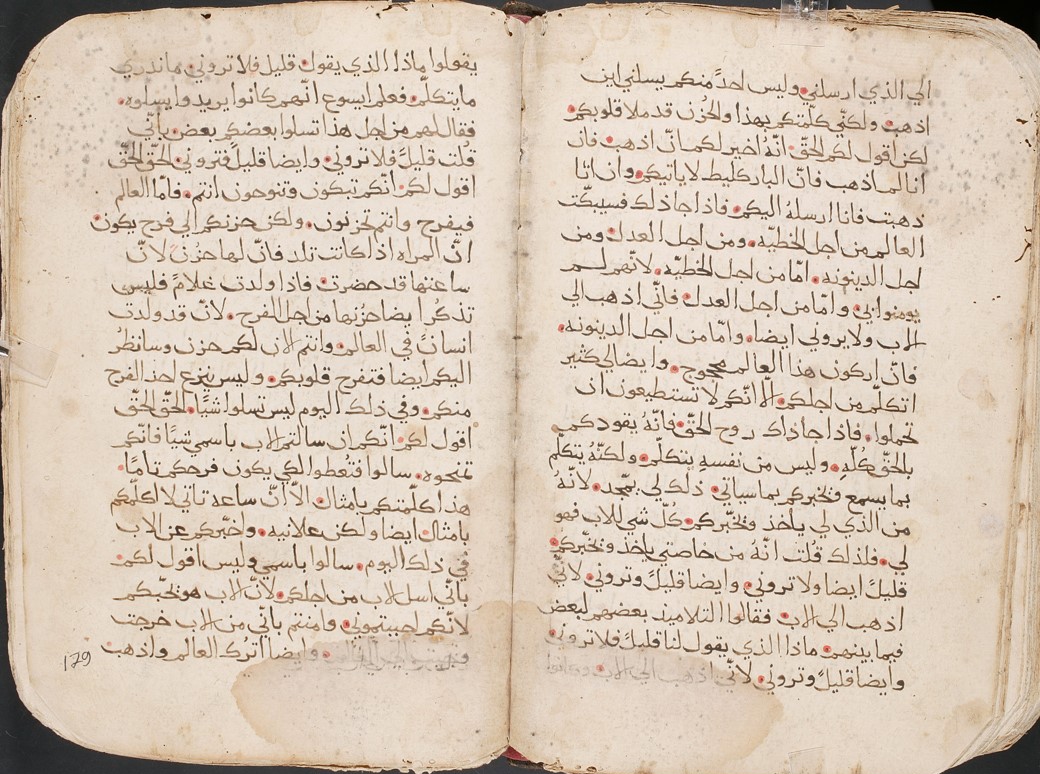 الي الذي ارسلني وليس احدًا منكم يسلني اين
اذهب ولكنّي كلّمتكم بهذا والحُزن قد ملا قلوبكم
لكن اقول لكم الحقّ انّهُ اخير لكم انّ اذهب فان
انا لم اذهب فانّ الباركليط لا ياتيكم وان انا
ذهبت فانا ارسلهُ اليكم فاذا جا ذلك فسيبكّت
العالم من اجل الخطيّه ومن اجل العدل ومن
اجل الدينونه امّا من اجل الخطيّه لانّهم لم
يومنوا بي وامّا من اجل العدل فانّي اذهب الي
الاب ولا يروني ايضا وامّا من اجل الدينونه
فانّ اركون هذا العالم محجوج وايضا لي كثير
اتكلّم من اجلكم الّا انّكم لا تستطيعون ان
تحملوا فاذا جا ذاك روح الحقّ فانّهُ يقودكم
بالحقّ كُلّهِ وليس من نفسهِ يتكلّم ولكنّهُ يتكلّم
بما يسمع فيخبركم بما سياتي ذلك لي يمجّد لانّهُ
من الذي لي ياخذ ويخبّركم كلّ شي للاب فهو
لي فلذلك قلت انّهُ من خاصتي ياخذ ويخبّركم
قليلً ايضا ولا تروني وايضا قليلً وتروني لانّي
اذهب الي الاب فقالوا التلاميذ بعضهم لبعض
فيما بينهم ماذا الذي يقول لنا قليلً فلا تروني
وايضا قليلً وتروني لانّي اذهب الي الاب وكانوا
يقولوا ماذا الذي يقول قليل فلا تروني ما ندري
ما يتكلّم فعلم ايسوع انّهم كانوا يريدوا يسلوه
فقال لهم من اجل هذا تسلوا بعضكم بعض بانّي
قُلت قليلً فلا تروني وايضا قليلً فتروني الحق الحقّ
اقول لكم انّكم تبكون وتنوحون انتم فامّا العالم
فيفرح وانتم تحزنون ولكن حزنكم الي فرح يكون
انّ المراه اذا كانت تلد فانّ لها حزن لانّ
ساعتها قد حضرت فاذا ولدت غلامً فليس
تذكُر ايضا حزنها من اجل الفرح لانّ قد ولدت
انسان في العالم وانتم الان لكم حزن وسانظرُ
اليكم ايضا فتفرح قلوبكم وليس ينزع احد الفرح
منكم وفي ذلك اليوم ليس تسلوا شيًا الحق الحقّ
اقول لكم انّكم ان سالتم الاب باسمي شيًا فانّكم
تمنحوه سالوا فتُعطوا لكي يكون فرحكم تامًا
هذا كلّمتكم بامثال الّا انّ ساعه تاتي لا اكلّمكم
بامثال ايضا ولكن علانيه واخبّركم عن الاب
في ذلك اليوم سالوا باسمي وليس اقول لكم
بانّي اسل الاب من اجلكم لانّ الاب هو يحبّكم
لانّكم احببتموني وامنتم بانّي من الاب خرجت
وايضا اترُك العالم واذهب
179